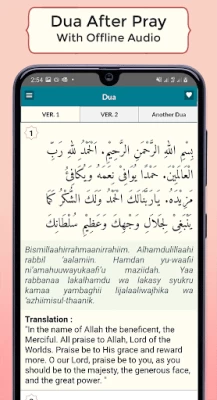 Dua After Pray
With Offline Audio
2:54
Dua
VER. 1
VER. 2
Another Dua
1
بِسْمِ اللهِ الرَّحْمَنِ الرَّحِيْمِ. اَلْحَمْدُ لِلّٰهِ رَبِّ
الْعَالَمِيْنَ. حَمْدًا يُوَافِيْ نِعَمَهُ وَيُكَافِئُ
مَزِيْدَهُ. يَارَبَّنَالَكَ الْحَمْدُ وَلَكَ الشُّكْرُ كَمَا
يَنْبَغِيْ لِجَلَالِ وَجْهِكَ وَعَظِيْمِ سُلْطَانِكَ
Bismillaahirrahmaanirrahiim. Alhamdulillaahi
rabbil 'aalamiin. Hamdan yu-waafii
ni'amahuuwayukaafi'u maziidah. Yaa
rabbanaa lakalhamdu wa lakasy syukru
kamaa yambaghii lijalaaliwajhika wa
'azhiimisul-thaanik.
Translation :
"In the name of Allah the beneficent, the
Merciful. All praise to Allah, Lord of the
Worlds. Praise be to His grace and reward
more. O our Lord, praise be to you, as you
should be to the majesty, the generous face,
and the great power. "